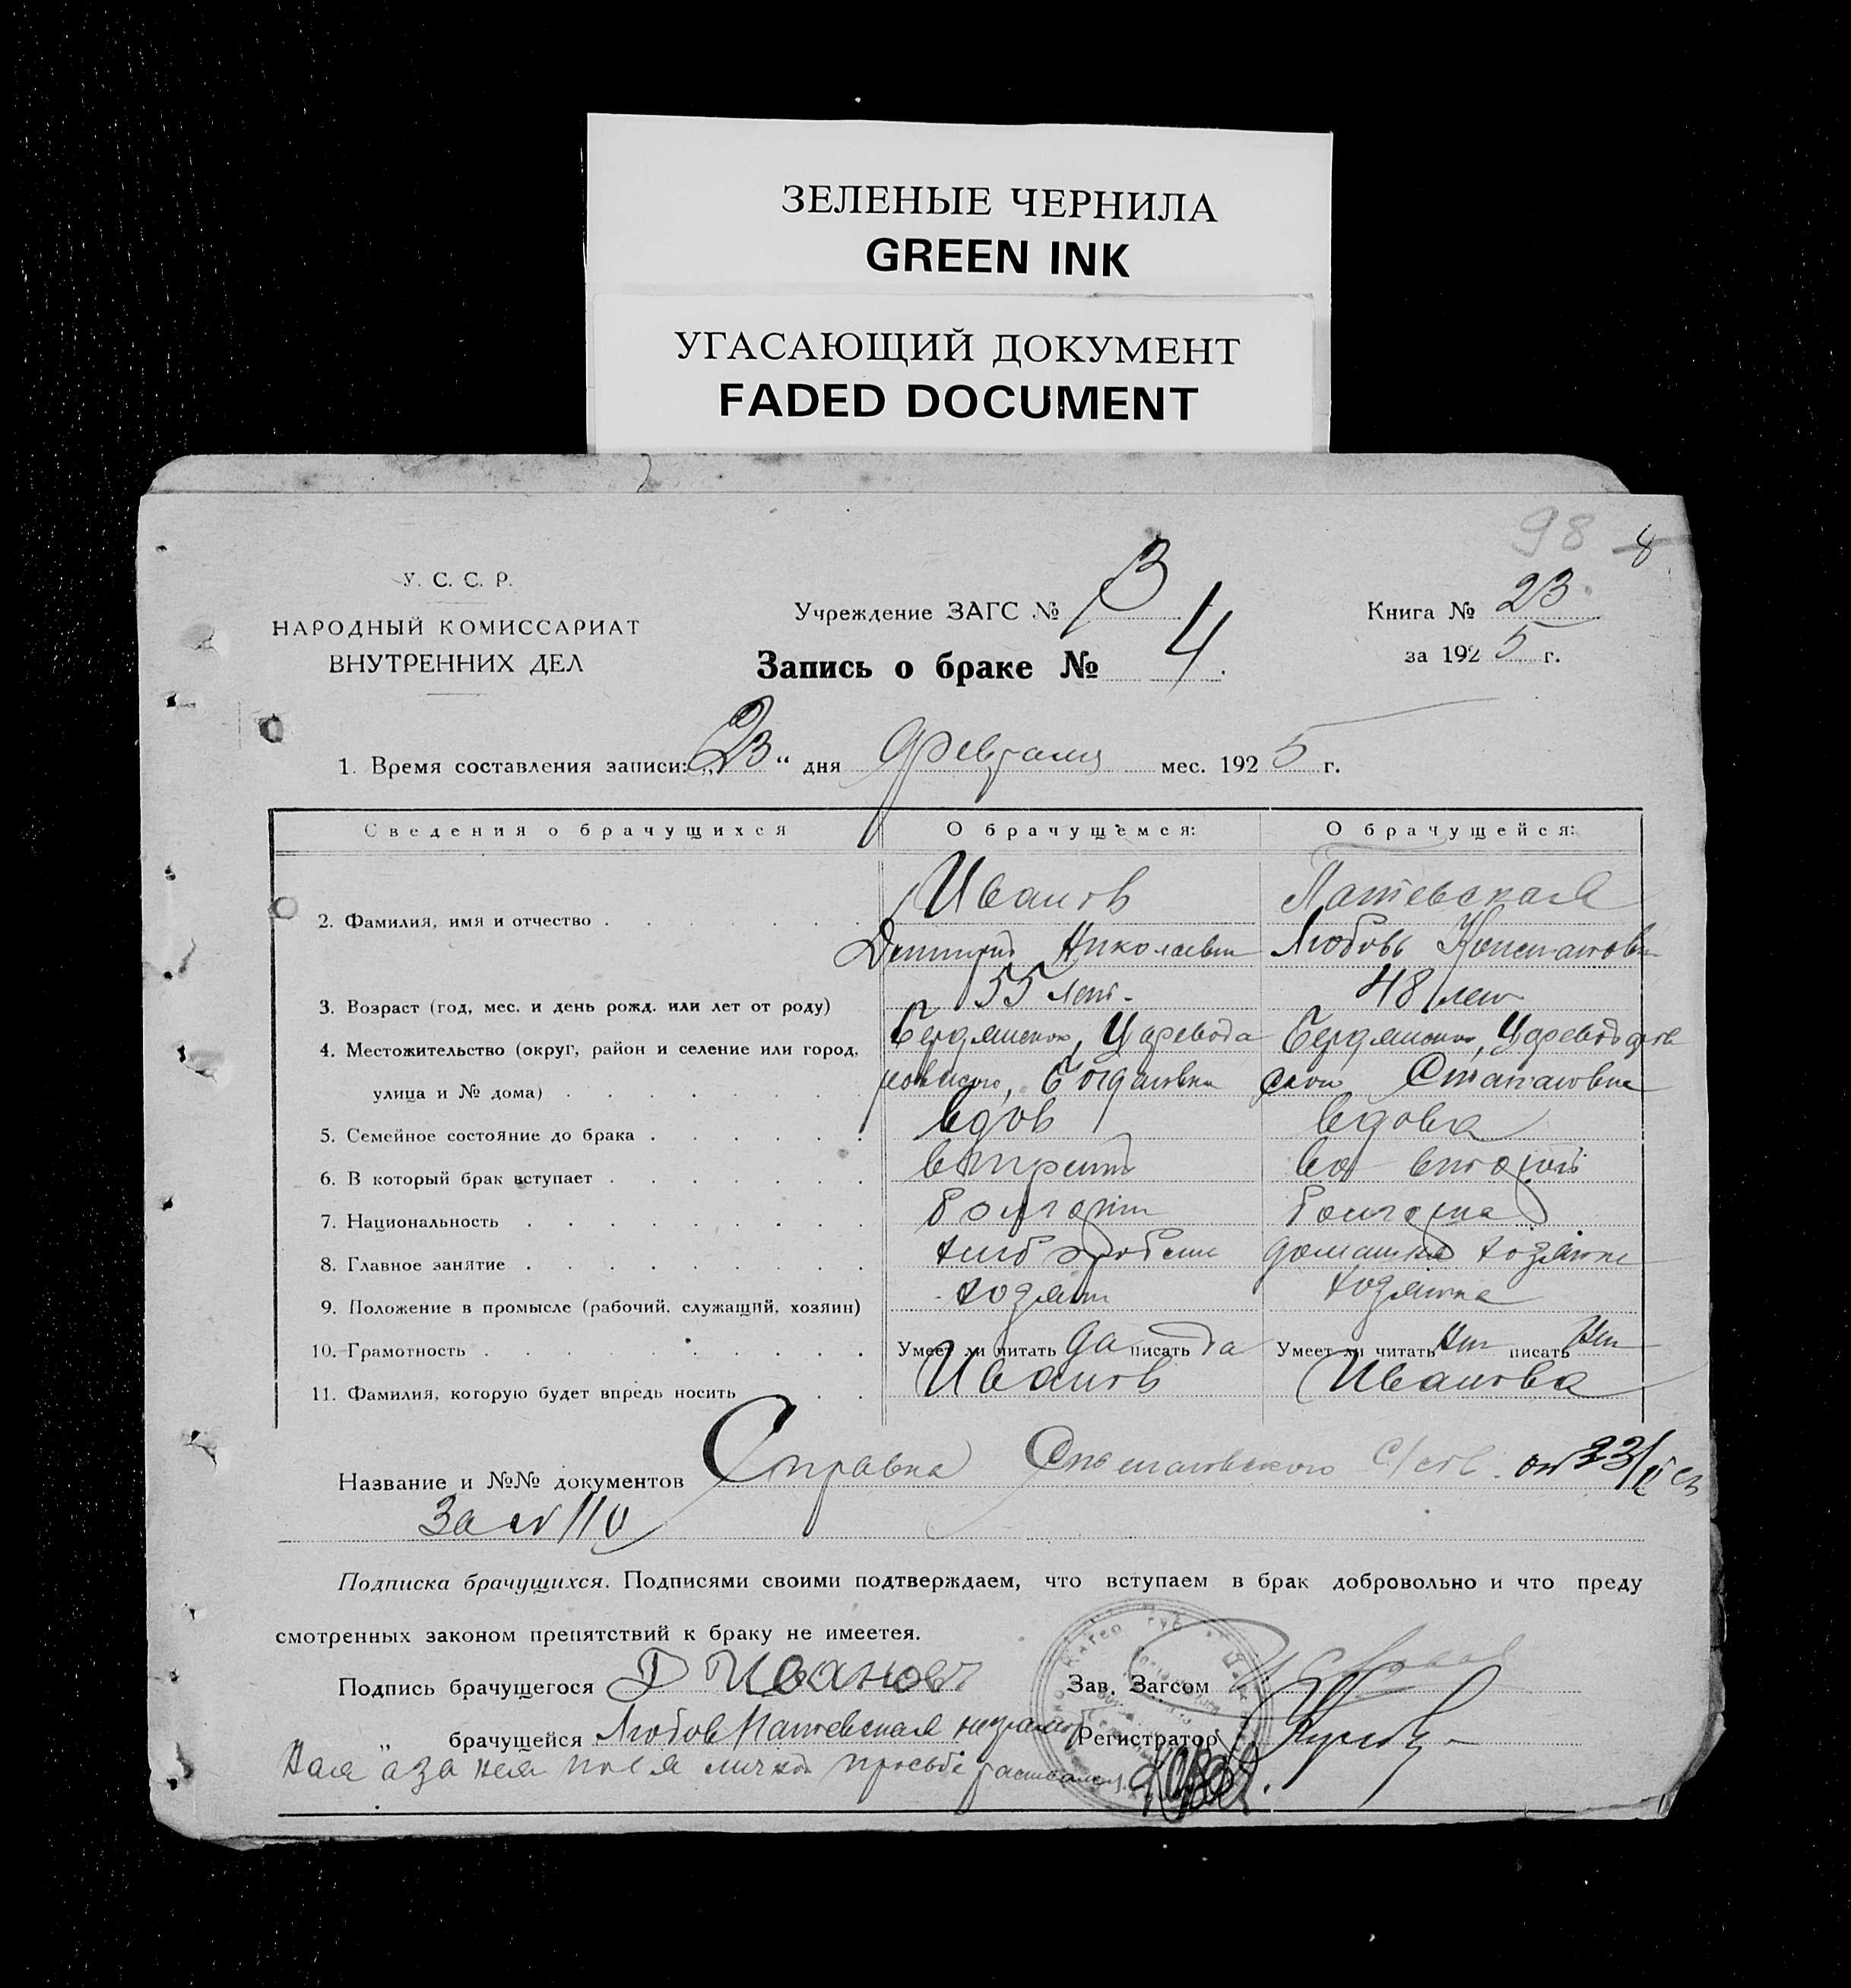 ЗЕЛЕНЫЕ ЧЕРНИЛА
GREEN INK
УГАСАЮЩИЙ ДОКУМЕНТ
FADED DOCUMENT
98 8
У. С. С. Р.
НАРОДНЫЙ КОМИССАРИАТ
ВНУТРЕННИХ ДЕЛ
Учреждение ЗАГС № 3
Запись о браке № 4.
Книга № 23
за 1925 г.
1. Время составления записи: „23“ дня Февраля мес. 1925 г.
Сведения о брачущихся О брачущемся: О брачущейся:
Иванов
2. Фамилия, имя и отчество
Дмитрий Николаевич Любовь
3. Возраст (год, мес. и день рожд. или лет от роду) 55 лет. 48 лет
4. Местожительство (округ, район и селение или город, Бердянского, Царевода Бердянского,
улица и № дома) ровского, Богдановка
5. Семейное состояние до брака вдов вдова
6. В который брак вступает в третий во второй
7. Национальность болгарин болгарка
8. Главное занятие домашня хозяйка
9. Положение в промысле (рабочий, служащий, хозяин) хозяин хозяйка
10. Грамотность Умеет ли читать да писать да Умеет ли читать нет писать нет
11. Фамилия, которую будет впредь носить Иванов Иванова
Название и №№ документов Справка с/сов. от 23/II
за № 110
Подписка брачущихся. Подписями своими подтверждаем, что вступаем в брак добровольно и что преду
смотренных законом препятствий к браку не имеетея.
Подпись брачущегося Д Ивановъ
Зав. Загсом
„ брачущейся Любов неграмот
Регистратор
ная а за нея по ея личной просьбе расписался